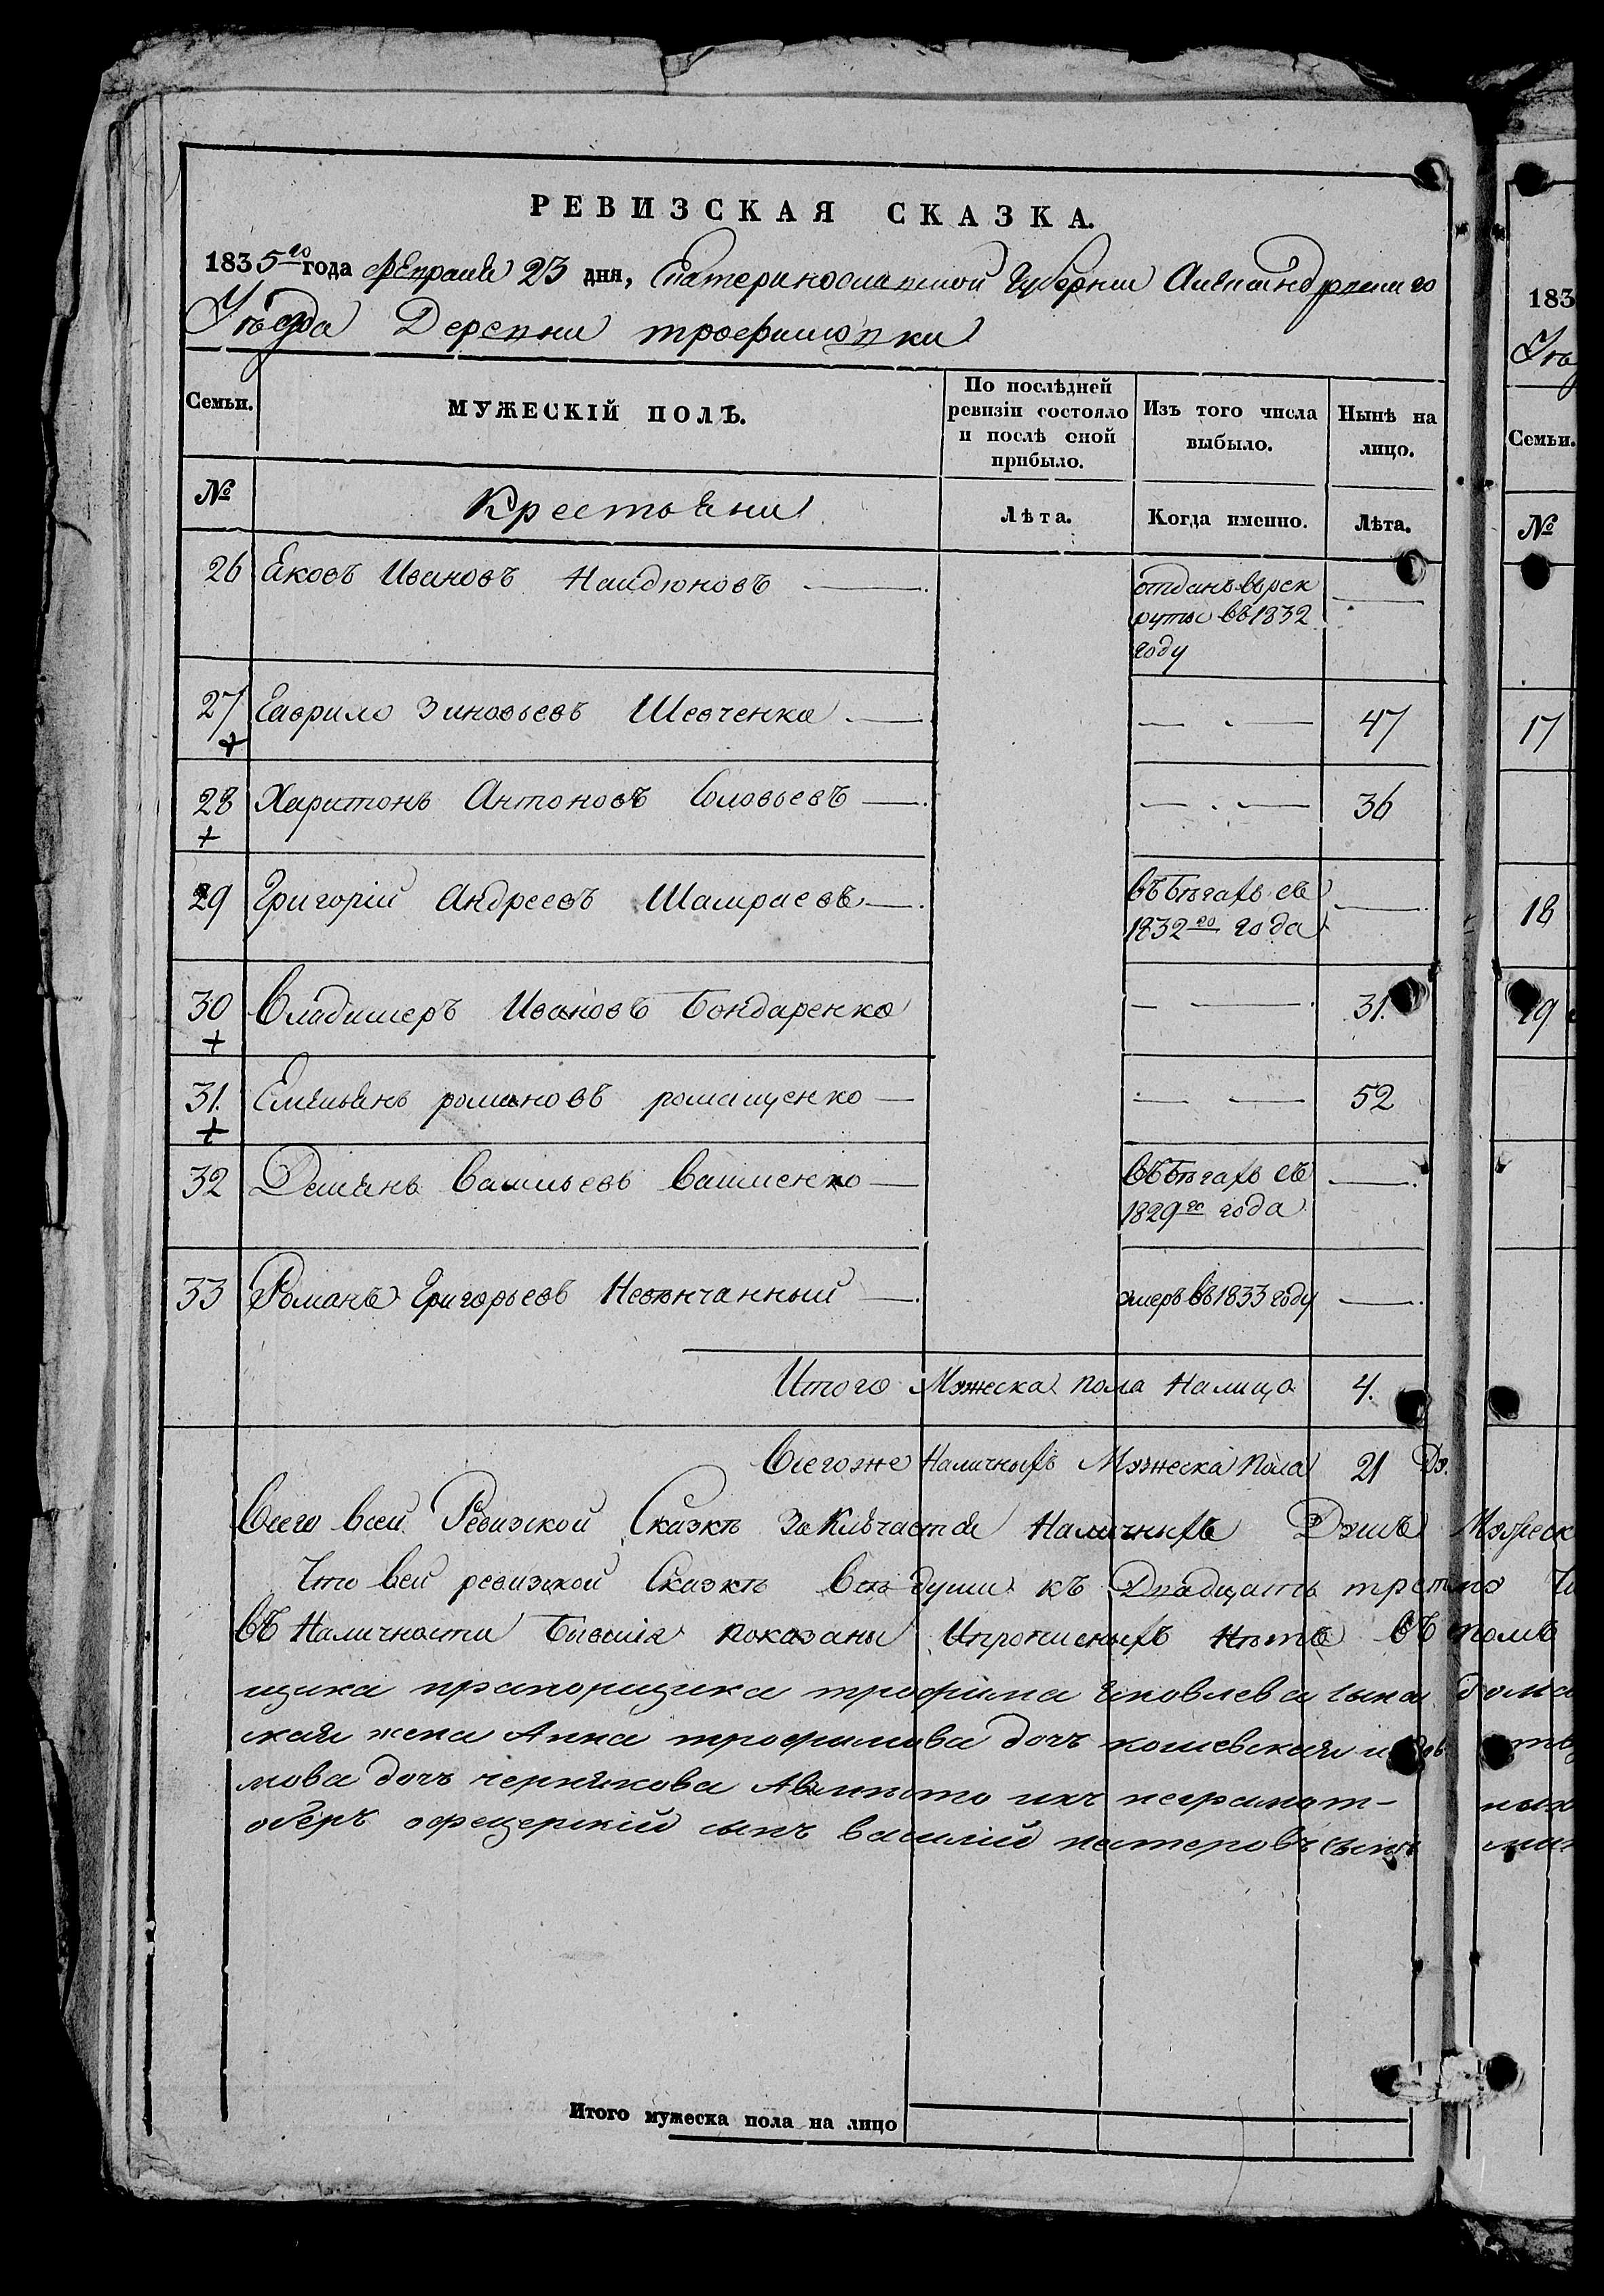 РЕВИЗСКАЯ СКАЗКА.
1835го года февраля 23 дня, Екатеринославской Губернии Александровского
Уѣзда Деревни трофимовки
Семьи.
МУЖЕСКІЙ ПОЛЪ.
По послѣдней ревизіи состояло и послѣ оной прибыло.
Изъ того числа выбыло.
Нынѣ на лицо.
№
Крестьяни
Лѣта.
Когда именно.
Лѣта.
26 Яковъ Ивановъ Найдюновъ — отданъ въ рек
руты въ 1832
году —
27 Гаврило Зиновьевъ Шевченко — — 47
+
28 Харитонъ Антоновъ Соловьевъ — — 36
+
29 Григорій Андреевъ Шамраевъ — въ бѣгахъ съ
1832го года —
30 Владимеръ Ивановъ Бондаренко — 31.
+
31. Емельянъ романовъ романценко — — 52
+
32 Демьянъ Васильевъ Василенко — въ бѣгахъ съ
1829го года —
33 Романъ Григорьевъ Невѣнчанный — умеръ въ 1833 году —
Итого Мужеска пола Налицо 4.
Всегоже Наличныхъ Мужеска Пола 21 Ду.
Всего всей Ревизской Сказкѣ Заключается Наличныхъ Душъ Мужеск
Что всей ревизской Сказкѣ всѣ души къ Двадцать трет
въ Наличности Бывшія показаны Ипрописныхъ Нѣтъ въ томъ
щика прапорщика трофима яковлева сына
ская жена Анна трофимова дочъ кошевская
мова дочъ чернякова Авмѣсто ихъ неграмот-
оберъ офецерскій сынъ василій петеровъ сынъ
Итого мужеска пола на лицо
183
Уѣ
Семьи.
№
17
18
19